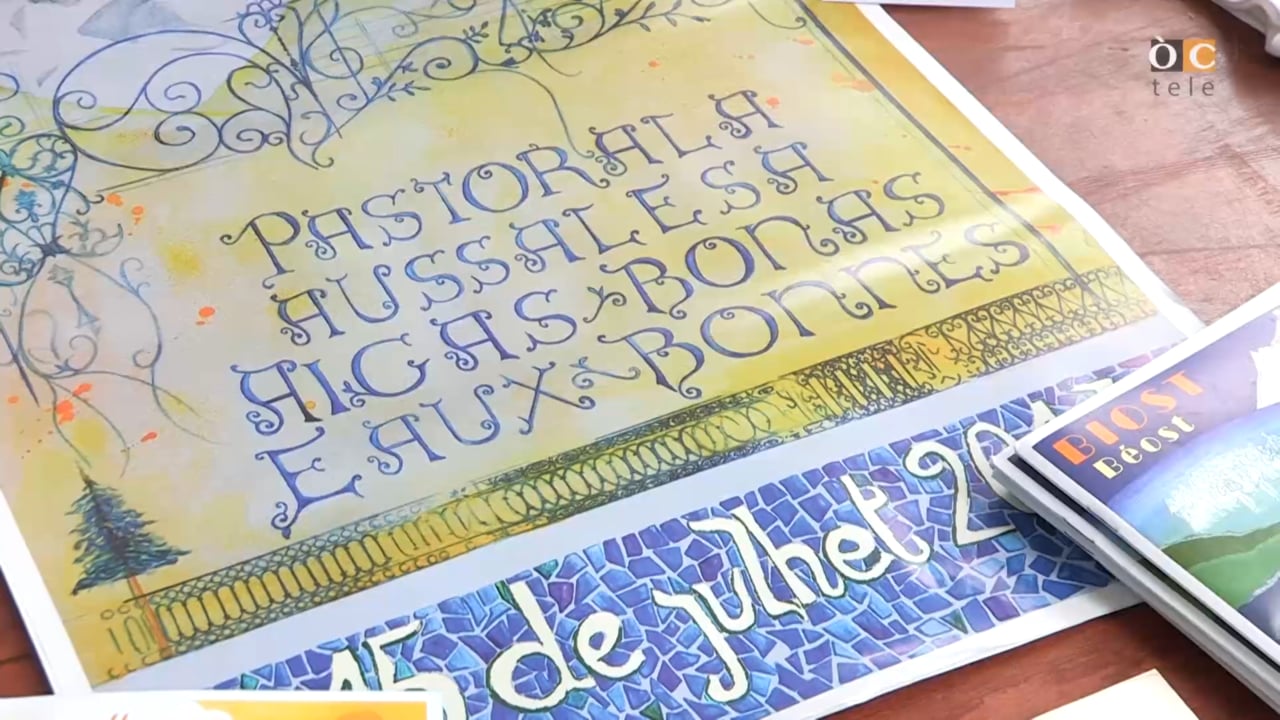 ÒC
tele
PASTORALA
AUSSALESA
AIGAS BONAS
EAUX BONNES
15 de julhet
BIOST
Béost